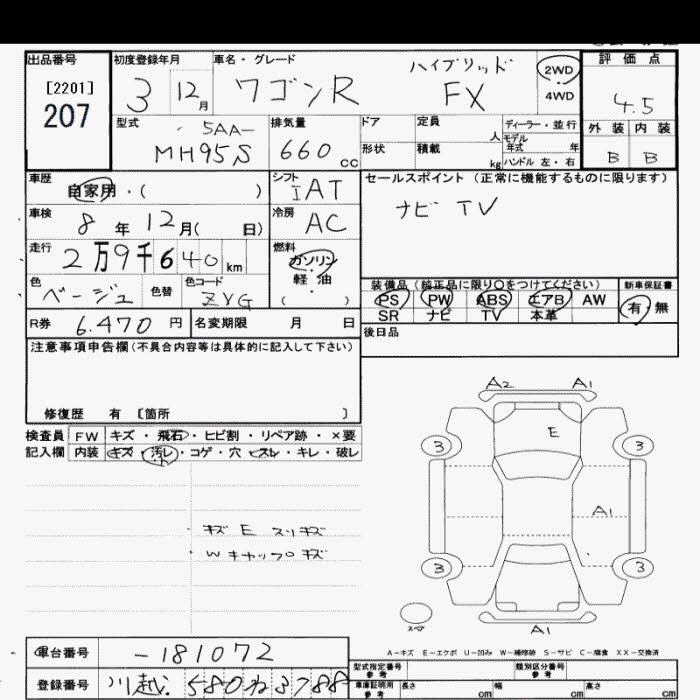 出品番号
[2201]
207
初度登録年月
3 12月
車名・グレード
ワゴンR ハイブリッド FX
2WD
4WD
評価点
4.5
外装 内装
B B
型式
5AA-
MH95S
排気量
660 cc
ドア
形状
定員 人
積載 kg
ディーラー・並行
モデル年式 年
ハンドル 左・右
車歴
自家用・( )
シフト
IAT
セールスポイント(正常に機能するものに限ります)
ナビ TV
車検
8年 12月( 日)
冷房
AC
走行
2万9千640km
燃料
ガソリン
軽・油
( )
色
ベージュ
色替
色コード
ZVG
装備品(純正品に限り〇をつけてください)
PS PW ABS エアB AW
SR ナビ TV 本革
新車保証書
有 無
R券 6.470 円
名変期限 月 日
後日品
注意事項申告欄(不具合内容等は具体的に記入して下さい)
修復歴 有 〔箇所 〕
検査員記入欄
FW キズ・飛石・ヒビ割・リペア跡・×要
内装 キズ・汚レ・コゲ・穴・スレ・キレ・破レ
キズ E スリキズ
Wキャップキズ
A2 A1
E
3 3
A1
3 3
スペア
A1
A-キズ E-エクボ U-凹み W-補修跡 S-サビ C-腐食 XX-交換済
車台番号
-181072
登録番号
川越 580 ね 3788
型式指定番号 参考
類別区分番号 参考
車庫証明用 参考
長さ cm 幅 cm 高さ cm